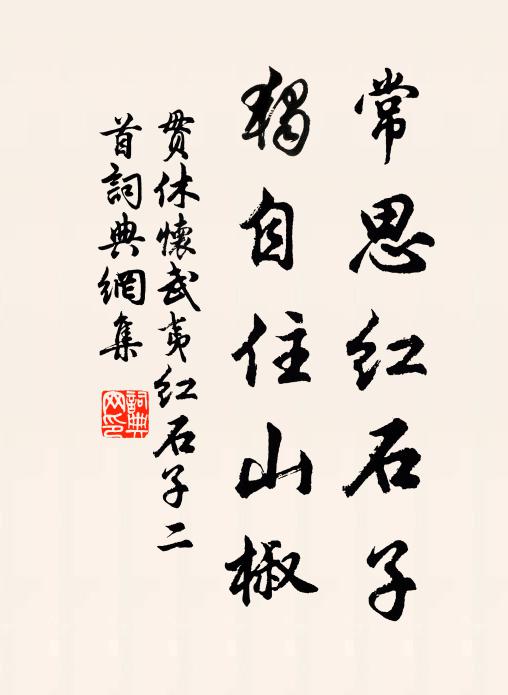 常思红石子
獨自住山椒
贯休懷武夷红石子二
首詞典網集
詞典网印